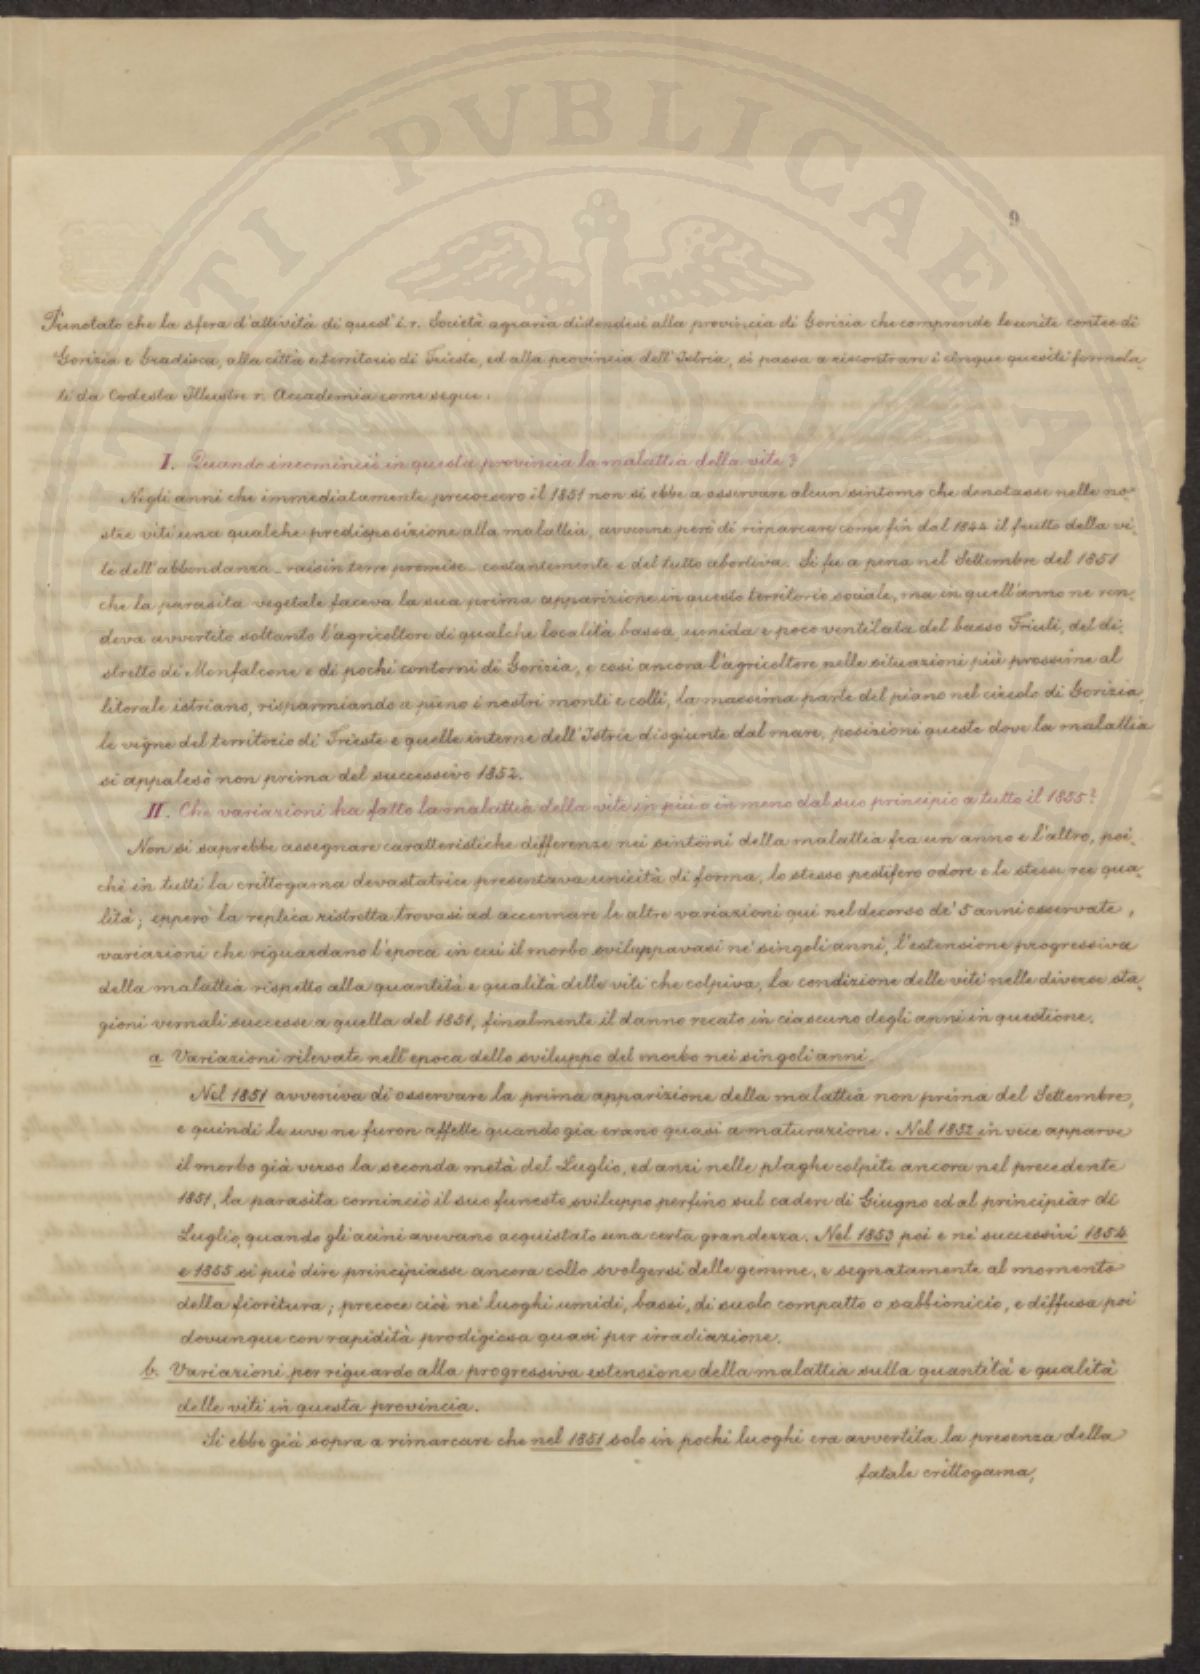 9
Prenotato che la sfera d'attività di quest'i. r. Società agraria distendesi alla provincia di Gorizia che comprende le unite contee di
Gorizia e Gradisca, alla città e territorio di Trieste, ed alla provincia dell'Istria, si passa a riscontrare i cinque quesiti formola-
ti da Codesta Illustre r. Accademia come segue:
I. Quando incominciò in questa provincia la malattia della vite?
Negli anni che immediatamente precorsero il 1851 non si ebbe a osservare alcun sintomo che denotasse nelle no-
stre viti una qualche predisposizione alla malattia, avvenne però di rimarcare come fin dal 1844 il frutto della vi-
te dell'abbondanza - raisin terre promise - costantemente e del tutto abortiva. Si fu a pena nel Settembre del 1851
che la parasita vegetale faceva la sua prima apparizione in questo territorio sociale, ma in quell'anno ne ren-
deva avvertito soltanto l'agricoltore di qualche località bassa, umida e poco ventilata del basso Friuli, del di-
stretto di Monfalcone e di pochi contorni di Gorizia, e così ancora l'agricoltore nelle situazioni più prossime al
litorale istriano, risparmiando a pieno i nostri monti e colli, la massima parte del piano nel circolo di Gorizia,
le vigne del territorio di Trieste e quelle interne dell'Istria disgiunte dal mare, posizioni queste dove la malattia
si appalesò non prima del successivo 1852.
II. Che variazioni ha fatto la malattia della vite in più o in meno dal suo principio a tutto il 1855?
Non si saprebbe assegnare caratteristiche differenze nei sintomi della malattia fra un anno e l'altro, poi-
chè in tutti la crittogama devastatrice presentava unicità di forma, lo stesso pestifero odore e le stesse ree qua-
lità; epperò la replica ristretta trovasi ad accennare le altre variazioni qui nel decorso de' 5 anni osservate,
variazioni che riguardano l'epoca in cui il morbo sviluppavasi ne' singoli anni, l'estensione progressiva
della malattia rispetto alla quantità e qualità delle viti che colpiva, la condizione delle viti nelle diverse sta-
gioni vernali successe a quella del 1851, finalmente il danno recato in ciascuno degli anni in questione.
a Variazioni rilevate nell'epoca dello sviluppo del morbo nei singoli anni.
Nel 1851 avveniva di osservare la prima apparizione della malattia non prima del Settembre,
e quindi le uve ne furon affette quando già erano quasi a maturazione. Nel 1852 in vece apparve
il morbo già verso la seconda metà del Luglio, ed anzi nelle plaghe colpite ancora nel precedente
1851, la parasita cominciò il suo funesto sviluppo perfino sul cadere di Giugno ed al principiar di
Luglio, quando gli acini avevano acquistato una certa grandezza. Nel 1853 poi e ne' successivi 1854
e 1855 si può dire principiasse ancora collo svolgersi delle gemme, e segnatamente al momento
della fioritura; precoce cioè ne' luoghi umidi, bassi, di suolo compatto o sabbionicio, e diffusa poi
dovunque con rapidità prodigiosa quasi per irradiazione.
b. Variazioni per riguardo alla progressiva estensione della malattia sulla quantità e qualità
delle viti in questa provincia.
Si ebbe già sopra a rimarcare che nel 1851 solo in pochi luoghi era avvertita la presenza della
fatale crittogama,